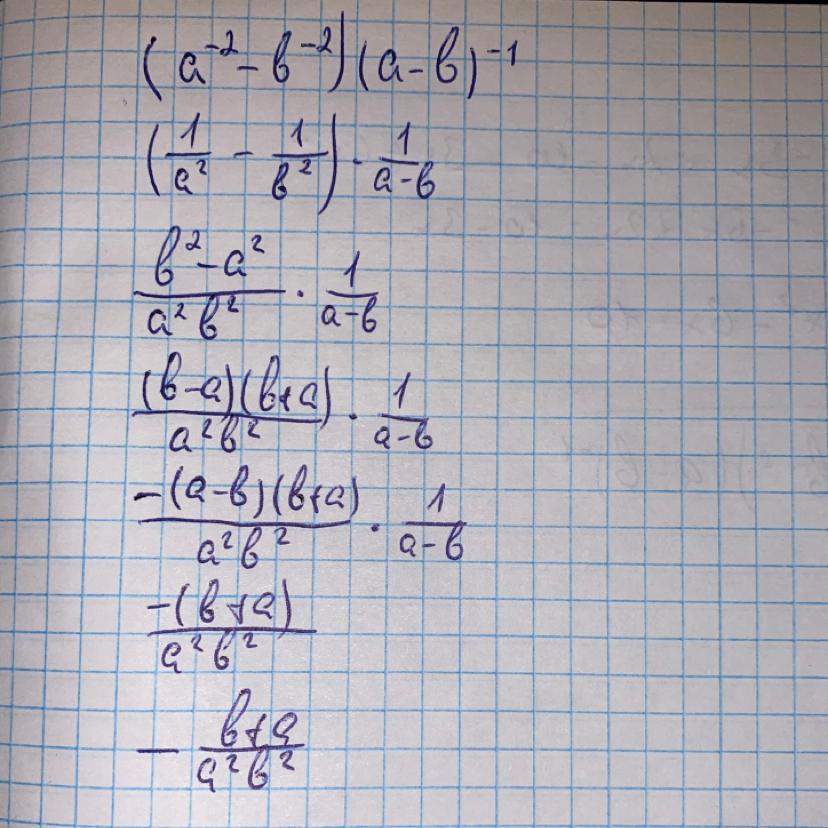 (a⁻² − b⁻²)(a − b)⁻¹
(1/a² − 1/в²) · 1/(a − в)
(b² − a²)/(a² b²) · 1/(a − b)
((b − a)(b + a))/(a² b²) · 1/(a − в)
(−(a − b)(b + a))/(a² b²) · 1/(a − b)
(−(b + a))/(a² b²)
− (b + a)/(a² b²)